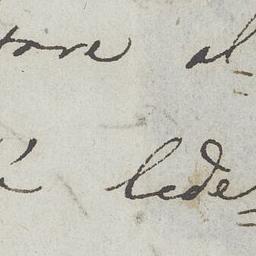 tore al=
lede=